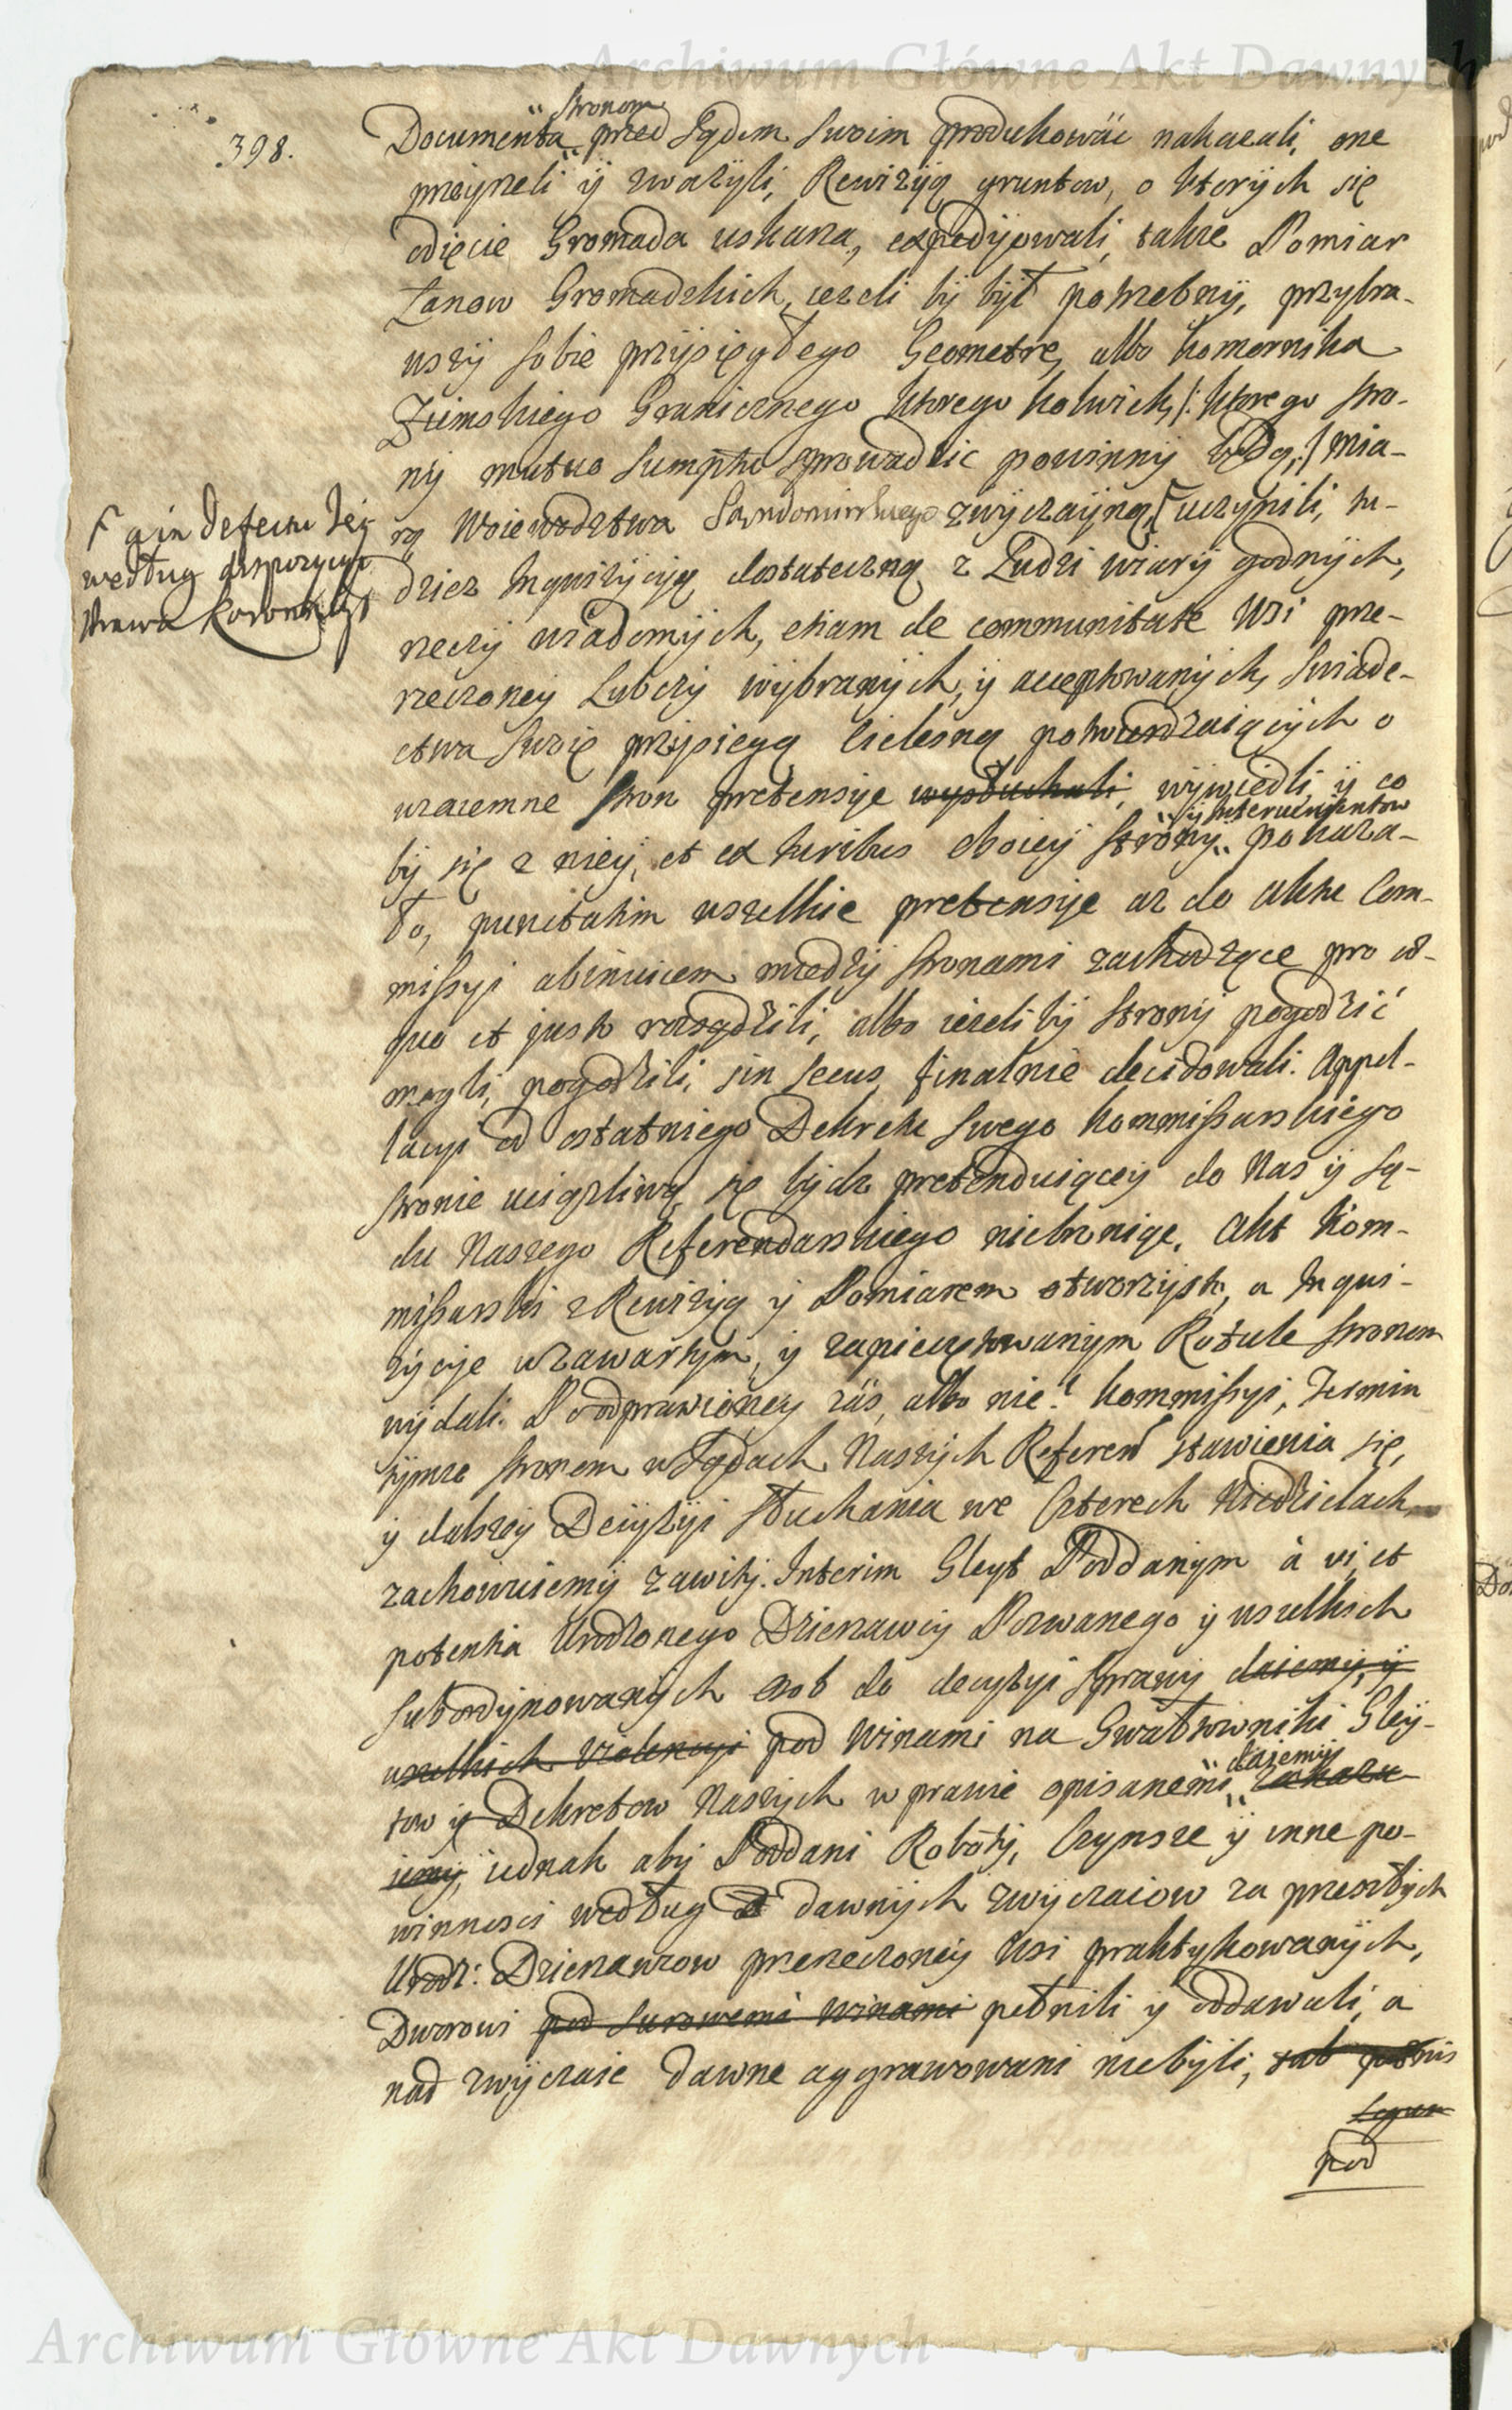 Archiwum Główne Akt Dawnych
398.
stronom
Documenta przed Sądem swoim produkować nakazali, one
przeyrzeli y zważyli, Rewizyią gruntow, o ktorych się
odięcie Gromada uskarza, expedyjowali, także Pomiar
Łanow Gromadzkich, ieżeli by był potrzebny, przybra-
wszy sobie przysięgłego Geometrę, albo komornika
Ziemskiego Granicznego ktorego kolwiek, /: ktorego stro-
ny mutuo sumptu sprowadzic powinny będą, :/ mia-
rą Woiewodztwa Sandomirskiego zwyczayną, uczynili, tu-
a in defectu Jey
według dispozycyi
Prawa Koronnego
dziez Inquizycyą dostateczną z Ludzi wiary godnych,
rzeczy wiadomych, etiam de communitate Wsi prze-
rzeczoney Lubczy wybranych, y acceptowanych, swiade-
ctwa swoie przysięgą cielesną potwierdzaiących o
wzaiemne stron pretensye wysłuchali, wywiedli, y co
y Interwenientow
by się z niey, et ex Iuribus oboiey strony pokaza-
ło, punctatim wszelkie pretensye aż do aktu Com-
missyi abinvicem między stronami zachodzące pro æ-
quo et justo rozsądzili, albo ieżeliby strony pogodzić
mogli, pogodzili, sin secus finalnie decidowali. Appel-
lacyi od ostatniego Dekretu swego Kommissarskiego
stronie uciążliwą się bydz pretenduiącey do Nas y Są-
du Naszego Referendarskiego niebroniąc. Akt Kom-
missarski z Rewizyą y Pomiarem otworzysto, a Inqui-
zycye w zawartym, y zapieczętowanym Rotule stronom
wydali. Po odprawioney zaś, albo nie! kommissyi, Termin
tymże stronom w Sądach Naszych Referen stawienia się,
y dalszey Decyzyi słuchania we Czterech Niedzielach
zachowuiemy zawity. Interim Gleyt Poddanym à vi, et
potentia Urodzonego Dzierzawcy Pozwanego y wszelkich
subordynowanych osob do decyzyi sprawy daiemy, y
wszelkich violencyi pod Winami na Gwałtowniki Gley-
daiemy
tow y Dekretow Naszych w prawie opisanemi, zakazu-
iemy, iednak aby Poddani Roboty, Czynsze y inne po-
winnosci według dawnych zwyczaiow za przeszłych
Urodz: Dzierzawcow przerzeczoney Wsi praktykowanych,
Dworowi pod surowemi winami pełnili y oddawali, a
nad zwyczaie dawne aggrawowani niebyli, sub pœnis
Legum
pod
Archiwum Główne Akt Dawnych